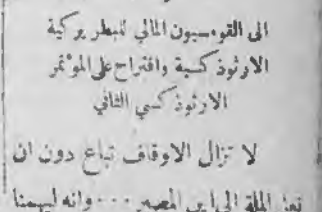 الى القومسيون المالي للبطريركية
الارثوذكسية واقتراح على المؤتمر
الارثوذكسي الثاني
لا تزال الاوقاف تباع دون ان
تعلم الملة الى اين المصير ... وانه ليهمنا